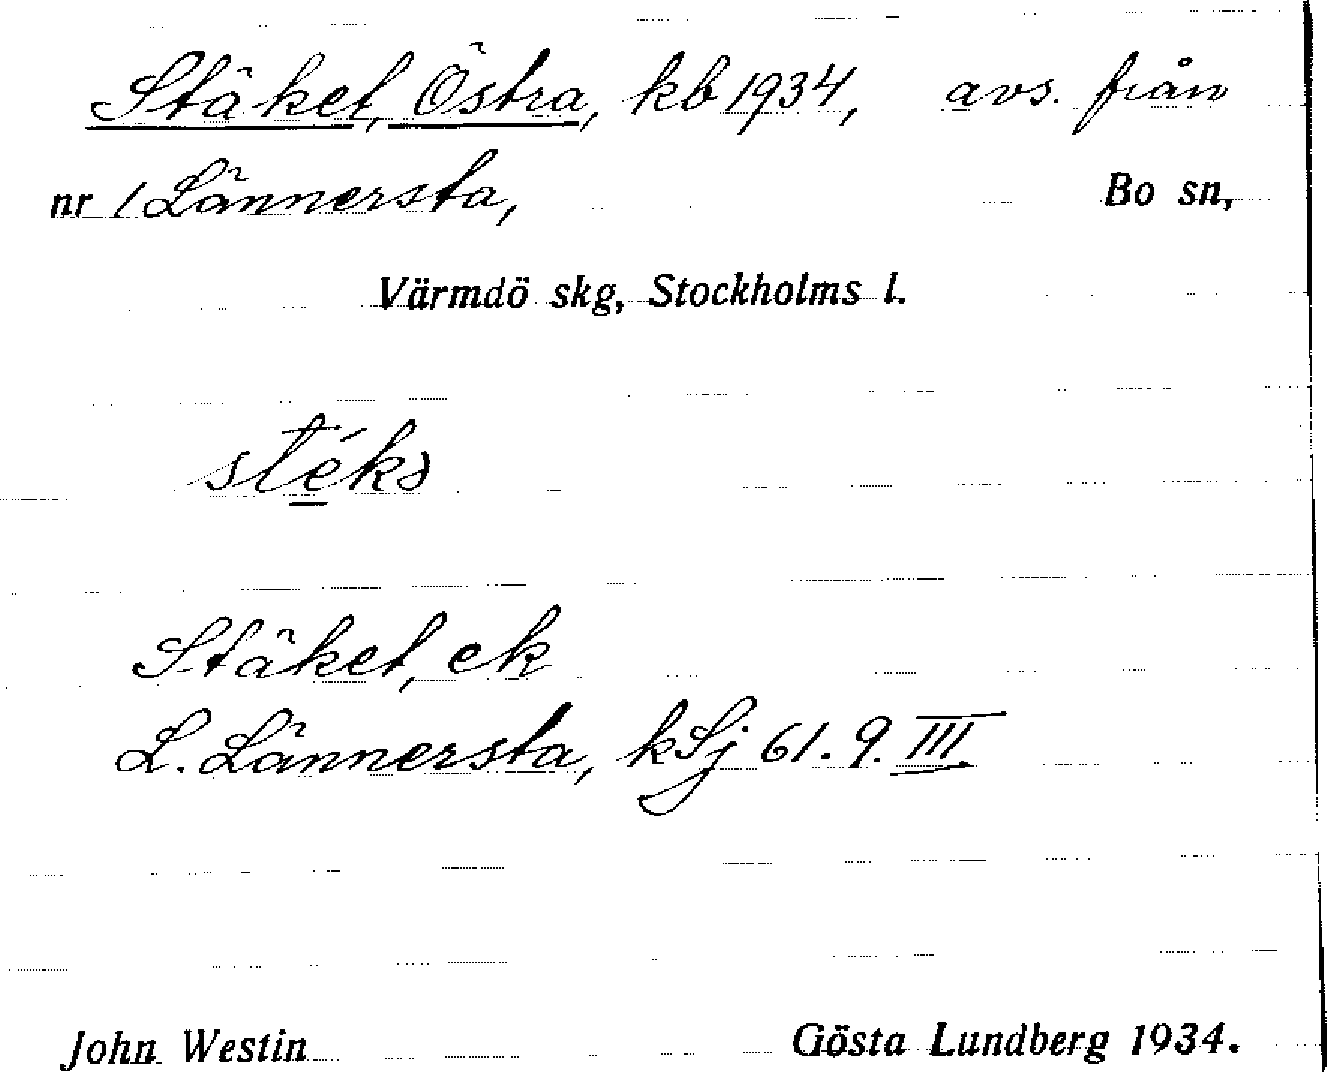 Stäket, Östra, kb 1934, avs. från
nr 1 Lännersta, Bo sn,
Värmdö skg, Stockholms l.
stéks
Stäket, ek
L. Lännersta, kSj 61. 9. III.
John Westin Gösta Lundberg 1934.